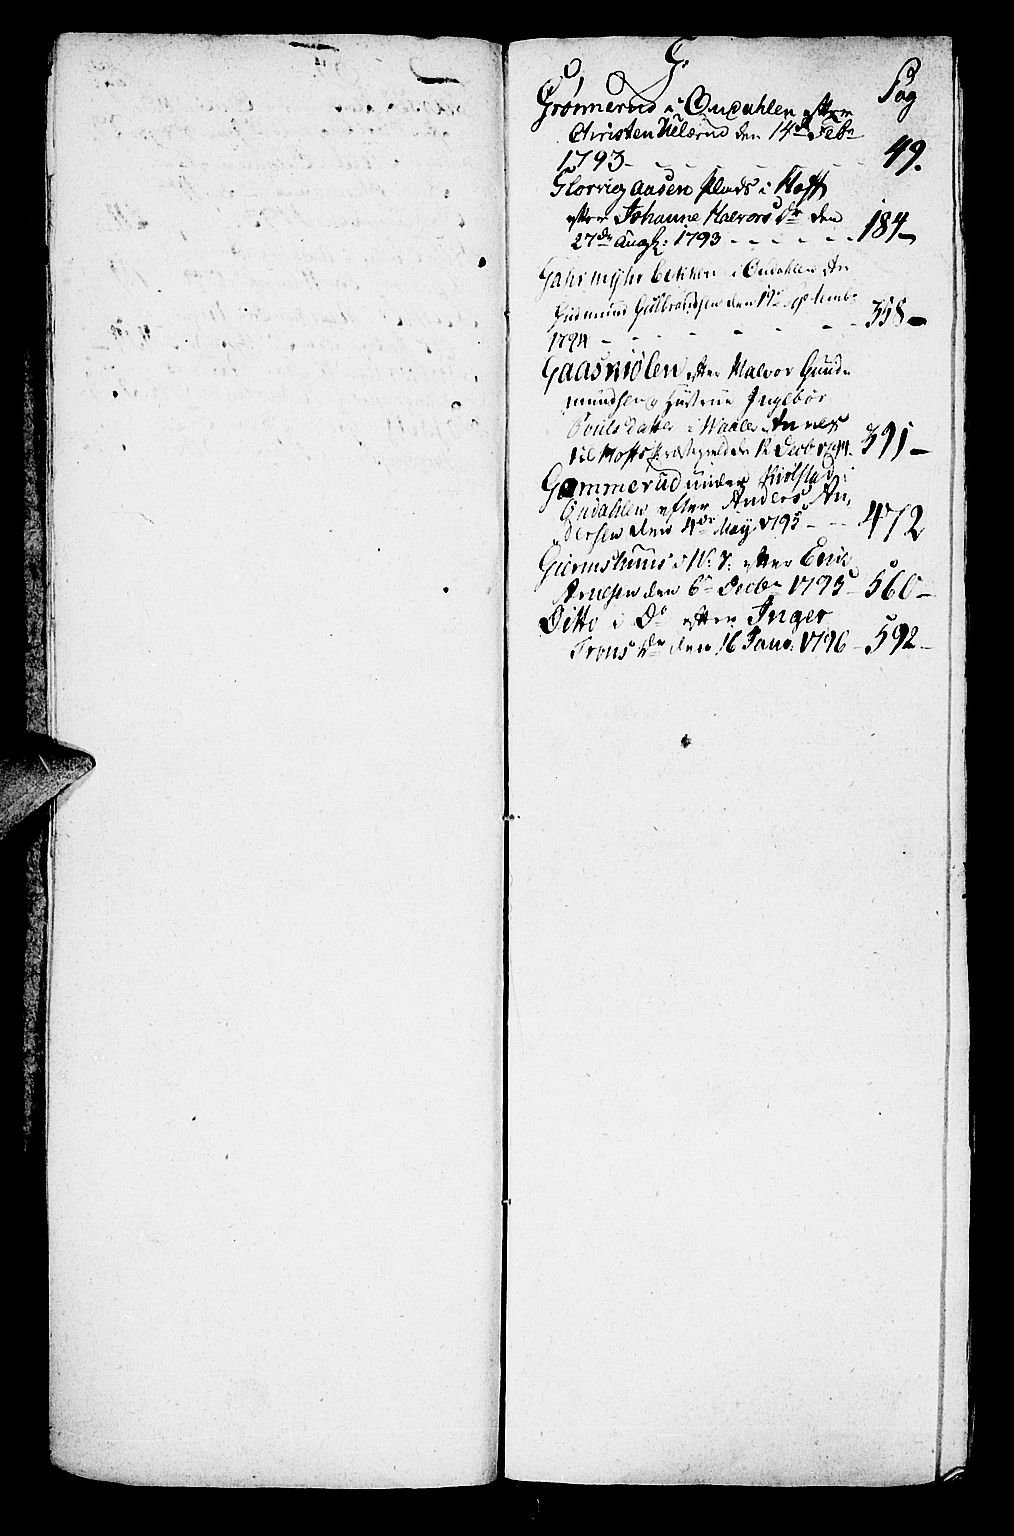 G
Pag
Grønnerud i Ourdahlen efter
Christen Kelærud den 14de Febr
1793 - - - - - 49.
Glorvigaasen Plads i Hoff
efter Johanne Halvors Dr den
27de Augst: 1793 - - - - - 184 -
Gahrmyhr i Ourdahlen
Gudmund Gulbrandsen den 19de Septembr
1794 - - - - - 358 -
Gaasmølen efter Halvor Gund-
mundsen og Hustrue Ingebor
Pouls datter i Waaler Annex
til Hoffs Præstegield den 12 Decbr 1794. 391 -
Gammerud under Kiølstad i
Ourdahlen efter Anders An-
dersen den 4de May 1795 - - 472
Giermshuus i W: S: efter Erich
Arnesen den 6te Decbr 1795 - 560 -
Ditto i Do efter Inger
Trons Dr den 16 Janv: 1796 - 592 -